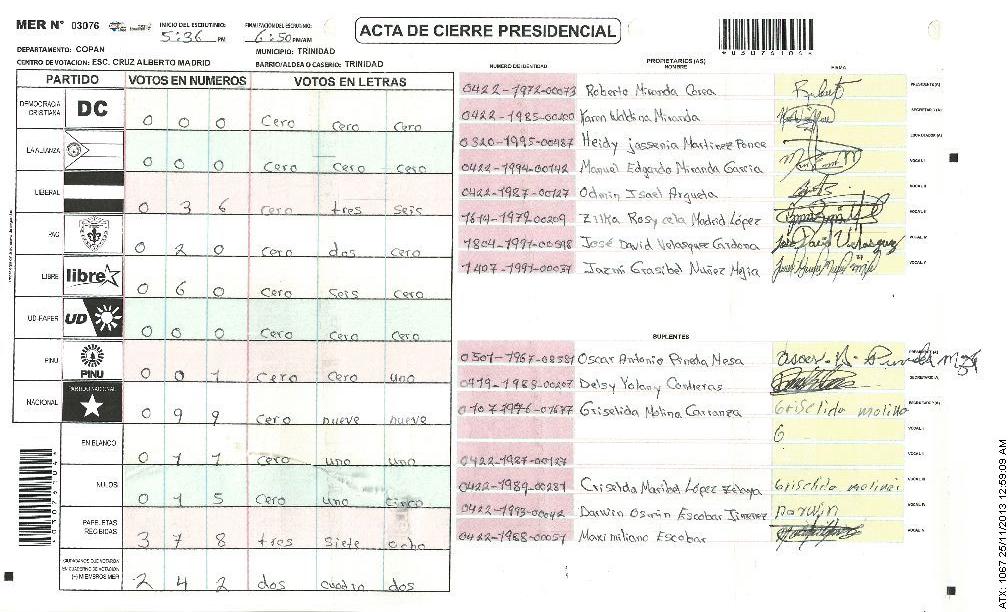 MER N° 03076
INICIO DEL ESCRUTINIO: 5:36 PM
FINALIZACION DEL ESCRUTINIO: 6:50 PM/AM
ACTA DE CIERRE PRESIDENCIAL
DEPARTAMENTO: COPAN
MUNICIPIO: TRINIDAD
CENTRO DE VOTACION: ESC. CRUZ ALBERTO MADRID
BARRIO/ALDEA O CASERIO: TRINIDAD
PARTIDO VOTOS EN NUMEROS VOTOS EN LETRAS
DEMOCRACIA CRISTIANA DC 0 0 0 Cero Cero Cero
LA ALIANZA 0 0 0 Cero Cero Cero
LIBERAL 0 3 6 Cero tres Seis
PAC 0 2 0 Cero dos Cero
LIBRE libre 0 6 0 Cero Seis Cero
UD-FAPER UD 0 0 0 Cero Cero Cero
PINU PINU 0 0 1 Cero Cero uno
NACIONAL PARTIDO NACIONAL 0 9 9 Cero nueve nueve
EN BLANCO 0 1 1 Cero uno uno
NULOS 0 1 5 Cero uno cinco
PAPELETAS RECIBIDAS 3 7 8 tres Siete ocho
CIUDADANOS QUE VOTARON EN CUADERNO DE VOTACION (+) MIEMBROS MER 2 4 2 dos cuatro dos
NUMERO DE IDENTIDAD PROPIETARIOS (AS) NOMBRE FIRMA
0422-1972-00073 Roberto Miranda Correa PRESIDENTE(A)
0422-1985-00200 Karen Waldina Miranda SECRETARIO(A)
0320-1995-00487 Heidy Jassenia Martinez Ponce ESCRUTADOR(A)
0422-1994-00142 Manuel Edgardo Miranda Garcia VOCAL I
0422-1987-00127 Odwin Isael Argueta VOCAL II
1614-1979-00209 Zilka Rosycela Madrid López
1804-1991-00598 José David Velasquez Cardona VOCAL IV
1407-1991-00037 Jazmi Grasibel Nuñez Mejia VOCAL V
SUPLENTES
0501-1967-08581 Oscar Antonio Pineda Mesa PRESIDENTE(A)
0419-1988-00207 Delsy Yolany Contreras SECRETARIO(A)
Griselida Molina Carranza Griselida molina
VOCAL I
0422-1987-00127 VOCAL II
0422-1989-00281 Criselda Maribel López Zelaya
0422-1993-00042 Darwin Osmin Escobar Jimenez Darwin VOCAL IV
0422-1988-00057 Maximiliano Escobar VOCAL V
ATX: 1067 25/11/2013 12:59:09 AM